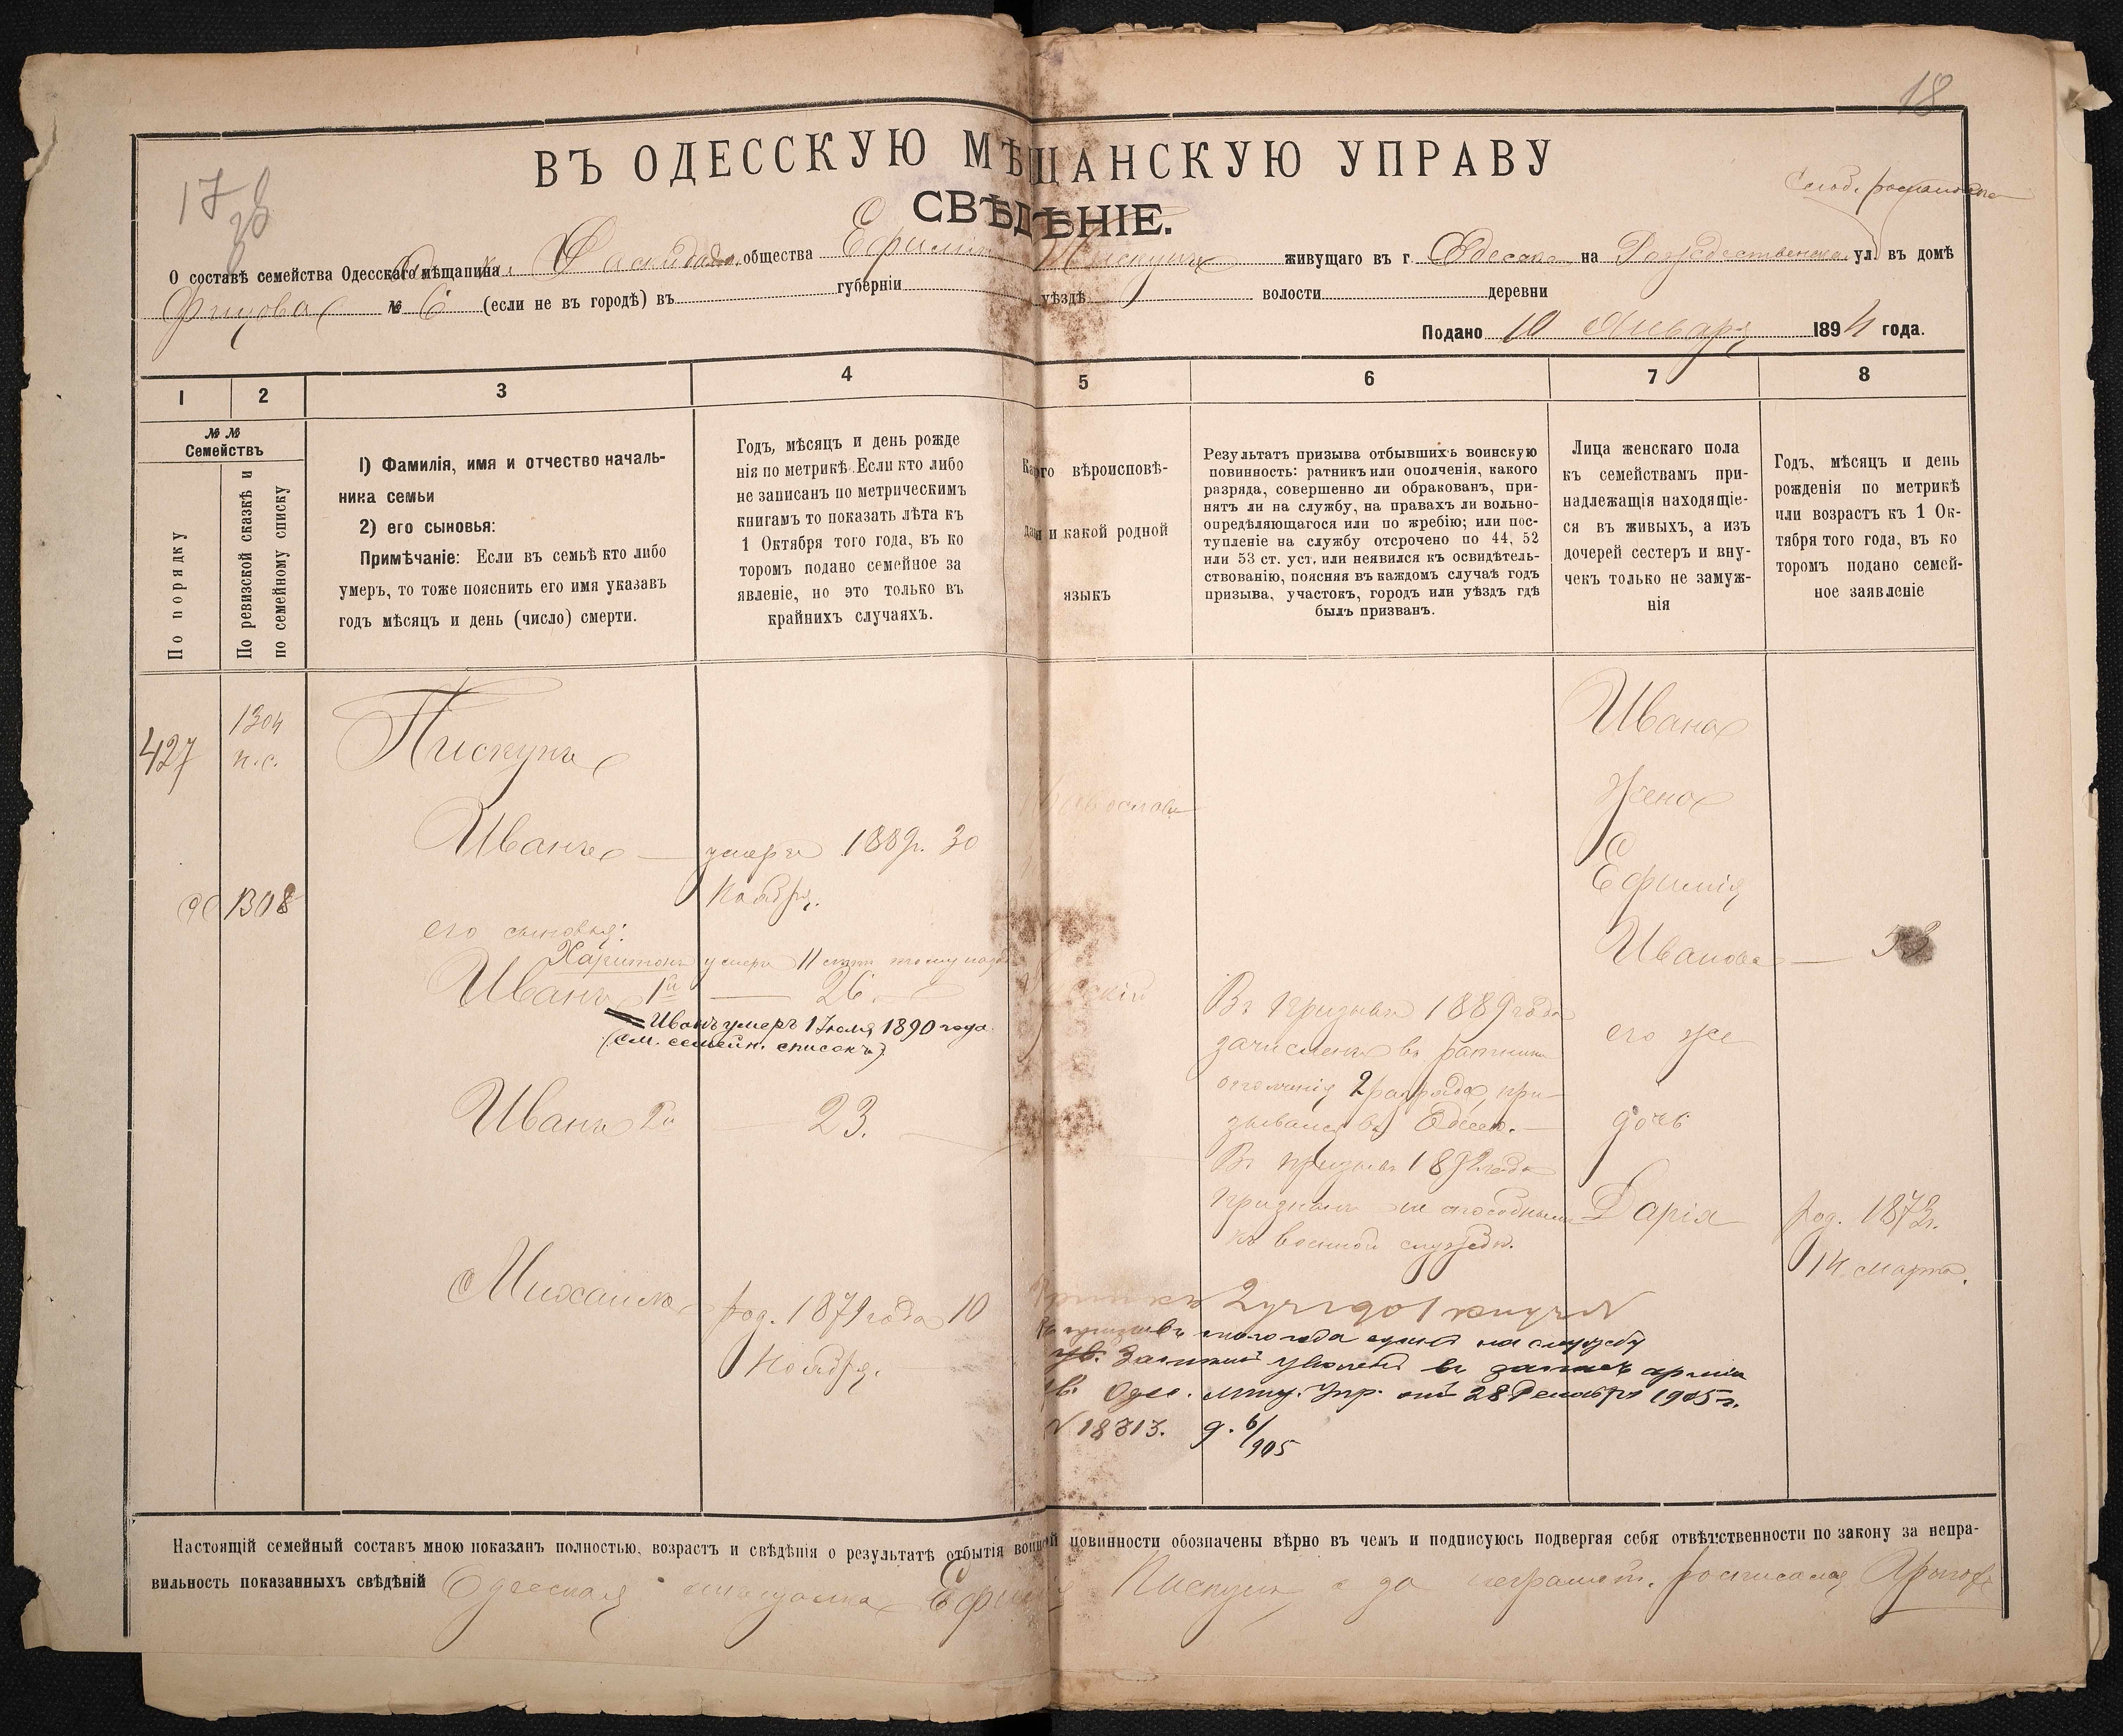 18
17
ВЪ ОДЕССКУЮ МѢЩАНСКУЮ УПРАВУ
СВѢДѢНІЕ.
О составѣ семейства Одесскаго мѣщанина общества Ефиміи Пискунъ живущаго въ г. Одессѣ на Рождественской ул. въ домѣ
№ 6 (если не въ городѣ) въ губерніи уѣздѣ волости деревни
Подано 10 Января 1894 года.
1 2 3 4 5 6 7 8
№ №
Семействъ
По порядку
По ревизской сказкѣ и
по семейному списку
1) Фамилія, имя и отчество началь-
ника семьи
2) его сыновья:
Примѣчаніе: Если въ семьѣ кто либо
умеръ, то тоже пояснить его имя указавъ
годъ мѣсяцъ и день (число) смерти.
Годъ, мѣсяцъ и день рожде
нія по метрикѣ. Если кто либо
не записанъ по метрическимъ
книгамъ то показать лѣта къ
1 Октября того года, въ ко
торомъ подано семейное за
явленіе, но это только въ
крайнихъ случаяхъ.
вѣроисповѣ-
и какой родной
языкъ
Результатъ призыва отбывшихъ воинскую
повинность: ратникъ или ополченія, какого
разряда, совершенно ли обракованъ, при-
нятъ ли на службу, на правахъ ли вольно-
опредѣляющагося или по жребію; или пос-
тупленіе на службу отсрочено по 44, 52
или 53 ст. уст. или неявился къ освидѣтель-
ствованію, поясняя въ каждомъ случаѣ годъ
призыва, участокъ, городъ или уѣздъ гдѣ
былъ призванъ.
Лица женскаго пола
къ семействамъ при-
надлежащія находящіе-
ся въ живыхъ, а изъ
дочерей сестеръ и вну-
чекъ только не замуж-
нія
Годъ, мѣсяцъ и день
рожденія по метрикѣ
или возрастъ къ 1 Ок-
тября того года, въ ко
торомъ подано семей-
ное заявленіе
427
1304
п.с.
1308
Пискунъ
Иванъ — умеръ 1889г. 30
Ноября.
его сыновья:
Харитонъ умеръ 11 лѣтъ тому назадъ
Иванъ 1й — 26.
Иванъ умеръ 1 Іюля 1890 года.
(см. семейн. списокъ)
Иванъ 2й 23.
Михаилъ род. 1879 года 10
Ноября.
Православн
Русскій
Въ призывѣ 1889 года
зачисленъ въ ратники
ополченія 2 разряда, при-
зывался въ Одессѣ.
Въ призывѣ 1892 года
признанъ не способнымъ
къ военной службѣ.
на службу
въ запасъ арміи
Одес. 28 Декабря 1905 г.
№ 18313. д. 6/905
Ивана
жена
Ефимія
Иванова — 53
его же
дочь
Дарія род. 1873г.
14 марта.
Настоящій семейный составъ мною показанъ полностью, возрастъ и свѣдѣнія о результатѣ отбытія воинской повинности обозначены вѣрно въ чемъ и подписуюсь подвергая себя отвѣтственности по закону за непра-
вильность показанныхъ свѣдѣній Одесская мѣщанка Ефимія Пискунъ а за неграмот. росписался